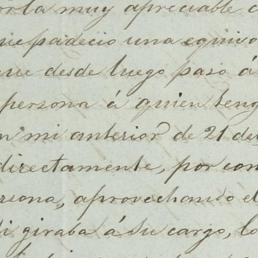 la muy apreciable
padeció una equivo
que desde luego pasó á
persona á quien teng
mi anterior de 21 de
directamente, por con
rsona, aprovechando el
i giraba á su cargo, lo